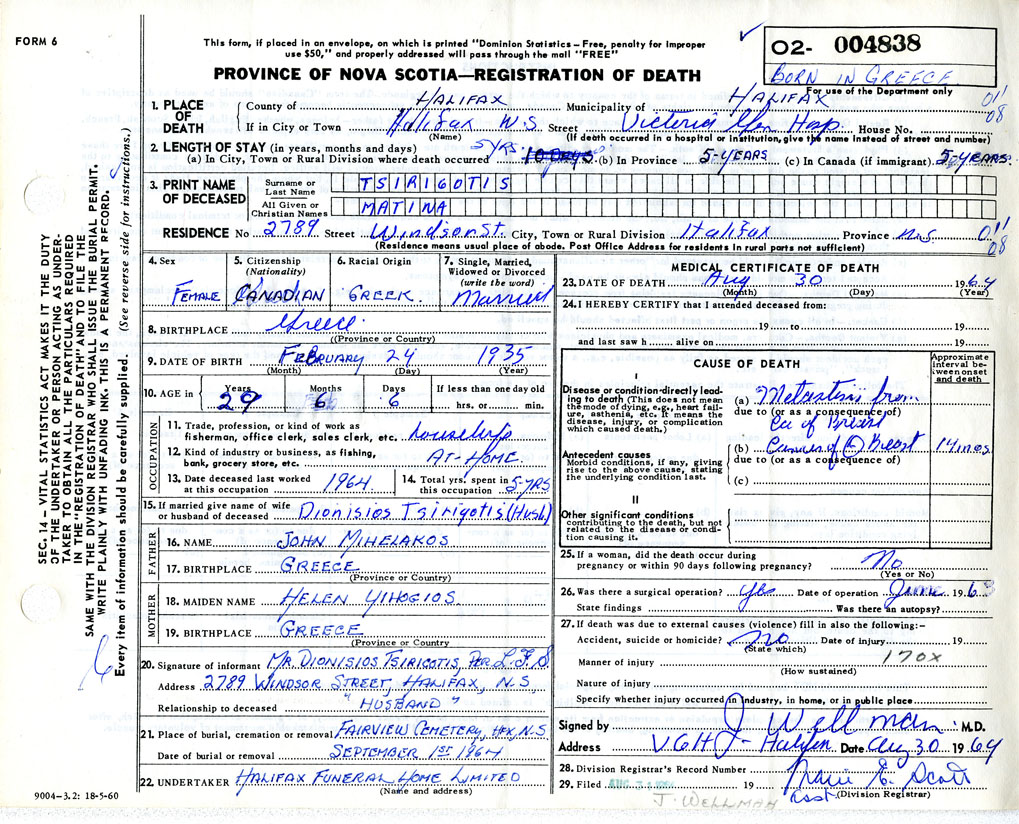 FORM 6
This form, if placed in an envelope, on which is printed "Dominion Statistics – Free, penalty for improper
use $50," and properly addressed will pass through the mail "FREE"
O2- 004838
BORN IN GREECE
PROVINCE OF NOVA SCOTIA—REGISTRATION OF DEATH
For use of the Department only
1. PLACE OF DEATH
County of HALIFAX Municipality of HALIFAX 011
08
If in City or Town Halifax N.S Street Victoria Gen Hosp. House No.
(Name) (If death occurred in a hospital or institution, give the name instead of street and number)
2. LENGTH OF STAY (in years, months and days) 5 YRS
(a) In City, Town or Rural Division where death occurred 10 DAYS (b) In Province 5-YEARS (c) In Canada (if immigrant) 5-YEARS
3. PRINT NAME OF DECEASED
Surname or Last Name TSIRIGOTIS
All Given or Christian Names MATINA
RESIDENCE No 2789 Street Windsor St. City, Town or Rural Division Halifax Province N.S. 011
08
(Residence means usual place of abode. Post Office Address for residents in rural parts not sufficient)
4. Sex FEMALE
5. Citizenship (Nationality) CANADIAN
6. Racial Origin GREEK
7. Single, Married, Widowed or Divorced (write the word) Married
8. BIRTHPLACE Greece
(Province or Country)
9. DATE OF BIRTH FEBRUARY 24 1935
(Month) (Day) (Year)
10. AGE in Years 29 Months 6 Days 6 If less than one day old
hrs. or min.
OCCUPATION
11. Trade, profession, or kind of work as
fisherman, office clerk, sales clerk, etc.
12. Kind of industry or business, as fishing,
bank, grocery store, etc. AT-HOME.
13. Date deceased last worked
at this occupation 1964
14. Total yrs. spent in
this occupation 5-YRS
15. If married give name of wife
or husband of deceased Dionisios Tsirigotis (Husb)
FATHER
16. NAME JOHN MIHELAKOS
17. BIRTHPLACE GREECE
(Province or Country)
MOTHER
18. MAIDEN NAME HELEN YIHOGIOS
19. BIRTHPLACE GREECE
(Province or Country)
20. Signature of informant MR DIONISIOS TSIRIGOTIS, PER L.F.S.
Address 2789 WINDSOR STREET, HALIFAX, N.S
Relationship to deceased "HUSBAND"
21. Place of burial, cremation or removal FAIRVIEW CEMETERY, HFX, N.S.
Date of burial or removal SEPTEMBER 1ST 1964
22. UNDERTAKER HALIFAX FUNERAL HOME LIMITED
(Name and address)
MEDICAL CERTIFICATE OF DEATH
23. DATE OF DEATH Aug 30 1964
(Month) (Day) (Year)
24. I HEREBY CERTIFY that I attended deceased from:
19 to 19
and last saw h alive on 19
CAUSE OF DEATH
Approximate interval between onset and death
I
Disease or condition directly leading to death (This does not mean the mode of dying, e.g., heart failure, asthenia, etc. It means the disease, injury, or complication which caused death.)
(a) Metastasis from
due to (or as a consequence of)
Ca of Breast
Antecedent causes
Morbid conditions, if any, giving rise to the above cause, stating the underlying condition last.
(b) Cancer of Breast 14 mos
due to (or as a consequence of)
(c)
II
Other significant conditions
contributing to the death, but not related to the disease or condition causing it.
25. If a woman, did the death occur during
pregnancy or within 90 days following pregnancy? No
(Yes or No)
26. Was there a surgical operation? Yes Date of operation June 1963
State findings Was there an autopsy?
27. If death was due to external causes (violence) fill in also the following:-
Accident, suicide or homicide? No Date of injury 19
(State which)
Manner of injury 170X
(How sustained)
Nature of injury
Specify whether injury occurred in industry, in home, or in public place
Signed by J Wellman M.D.
Address V.G.H - Halifax Date Aug 30 1964
28. Division Registrar's Record Number
29. Filed AUG 31 19 Marie E. Scott
J. WELLMAN Asst. (Division Registrar)
SEC. 14 – VITAL STATISTICS ACT MAKES IT THE DUTY
OF THE UNDERTAKER OR PERSON ACTING AS UNDER-
TAKER TO OBTAIN ALL THE PARTICULARS REQUIRED
IN THE "REGISTRATION OF DEATH" AND TO FILE THE
SAME WITH THE DIVISION REGISTRAR WHO SHALL ISSUE THE BURIAL PERMIT.
WRITE PLAINLY WITH UNFADING INK. THIS IS A PERMANENT RECORD.
Every item of information should be carefully supplied. (See reverse side for instructions.)
9004-3.2: 18-5-60